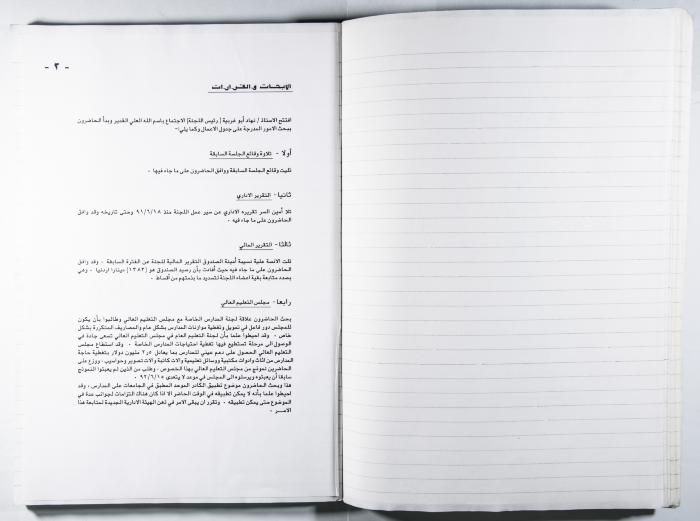 - ٢ -
الابحاث و القرارات
افتتح الاستاذ / نهاد أبو غربية ( رئيس اللجنة) الاجتماع باسم الله العلي القدير وبدأ الحاضرون
ببحث الامور المدرجة على جدول الاعمال وكما يلي:-
أولا - تلاوة وقائع الجلسة السابقة
تليت وقائع الجلسة السابقة ووافق الحاضرون على ما جاء فيها ٠
ثانيا- التقرير الاداري
تلا أمين السر تقريره الاداري عن سير عمل اللجنة منذ ٩١/٦/١٨ وحتى تاريخه وقد وافق
الحاضرون على ما جاء فيه ٠
ثالثا- التقرير المالي
تلت الانسة علية نسيبة أمينة الصندوق التقرير المالية للجنة عن الفترة السابقة ٠ وقد وافق
الحاضرون على ما جاء فيه حيث أفادت بأن رصيد الصندوق هو (١٣٨٣) دينارا اردنيا ٠ وهي
بصدد متابعة بقية اعضاء اللجنة لتسديد ما بذمتهم من أقساط ٠
رابعا- مجلس التعليم العالي
بحث الحاضرون علاقة لجنة المدارس الخاصة مع مجلس التعليم العالي وطالبوا بأن يكون
للمجلس دور فاعل في تمويل وتغطية موازنات المدارس بشكل عام والمصاريف المتكررة بشكل
خاص ٠ وقد احيطوا علما بأن لجنة التعليم العام في مجلس التعليم العالي تسعى جادة في
الوصول الى مرحلة تستطيع فيها تغطية احتياجات المدارس الخاصة ٠ وقد استطاع مجلس
التعليم العالي الحصول على دعم عيني للمدارس بما يعادل ٢٫٥ مليون دولار بتغطية حاجة
المدارس من اثاث وادوات مكتبية ووسائل تعليمية والات كاتبة والات تصوير وحواسيب ٠ ووزع على
الحاضرين نموذج من مجلس التعليم العالي بهذا الخصوص ٠ وطلب من الذين لم يعبئوا النموذج
سابقا أن يعبئوه ويرسلوه الى المجلس في موعد لا يتعدى ٩٢/٦/١٥ ٠
هذا وبحث الحاضرون موضوع تطبيق الكادر الموحد المطبق في الجامعات على المدارس ، وقد
احيطوا علما بأنه لا يمكن تطبيقه في الوقت الحاضر الا اذا كان هناك التزامات لجوانب عدة في
الموضوع حتى يمكن تطبيقه ٠ وتقرر ان يبقى الامر في ذهن الهيئة الادارية الجديدة لمتابعة هذا
الامــر ٠